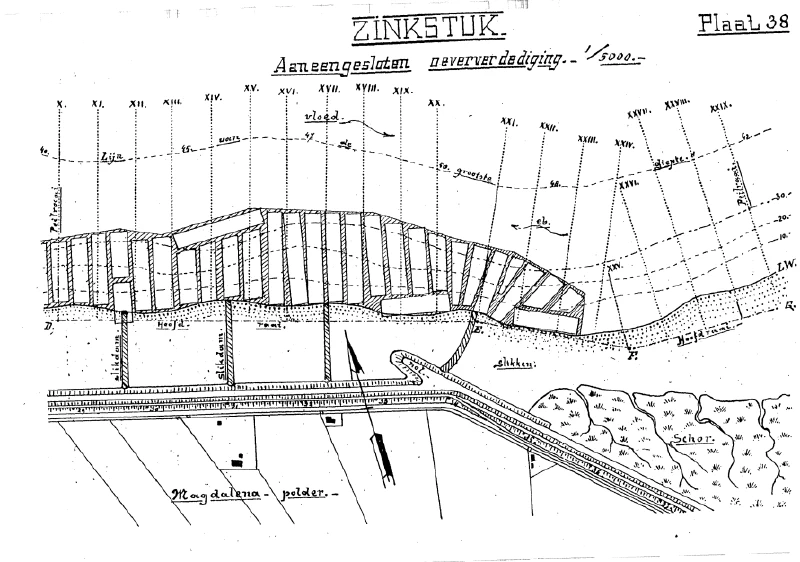 ZINKSTUK.
Plaat 38
Aaneengesloten oeververdediging. 1/5000.
X. XI. XII. XIII. XIV. XV. XVI. XVII. XVIII. XIX. XX.
XXI. XXII. XXIII. XXIV. XXV. XXVI. XXVII. XXVIII. XXIX.
vloed.
40. Lijn 45. waar 47. de 50. grootste 48. diepte. 42.
Peilraai
Peilraai
eb.
30.
20.
10.
L.W.
D. Hoofd raai. E. F. Hoofdraai G.
slikdam.
Slikdam.
Slikken.
Schor.
Magdalena - polder.